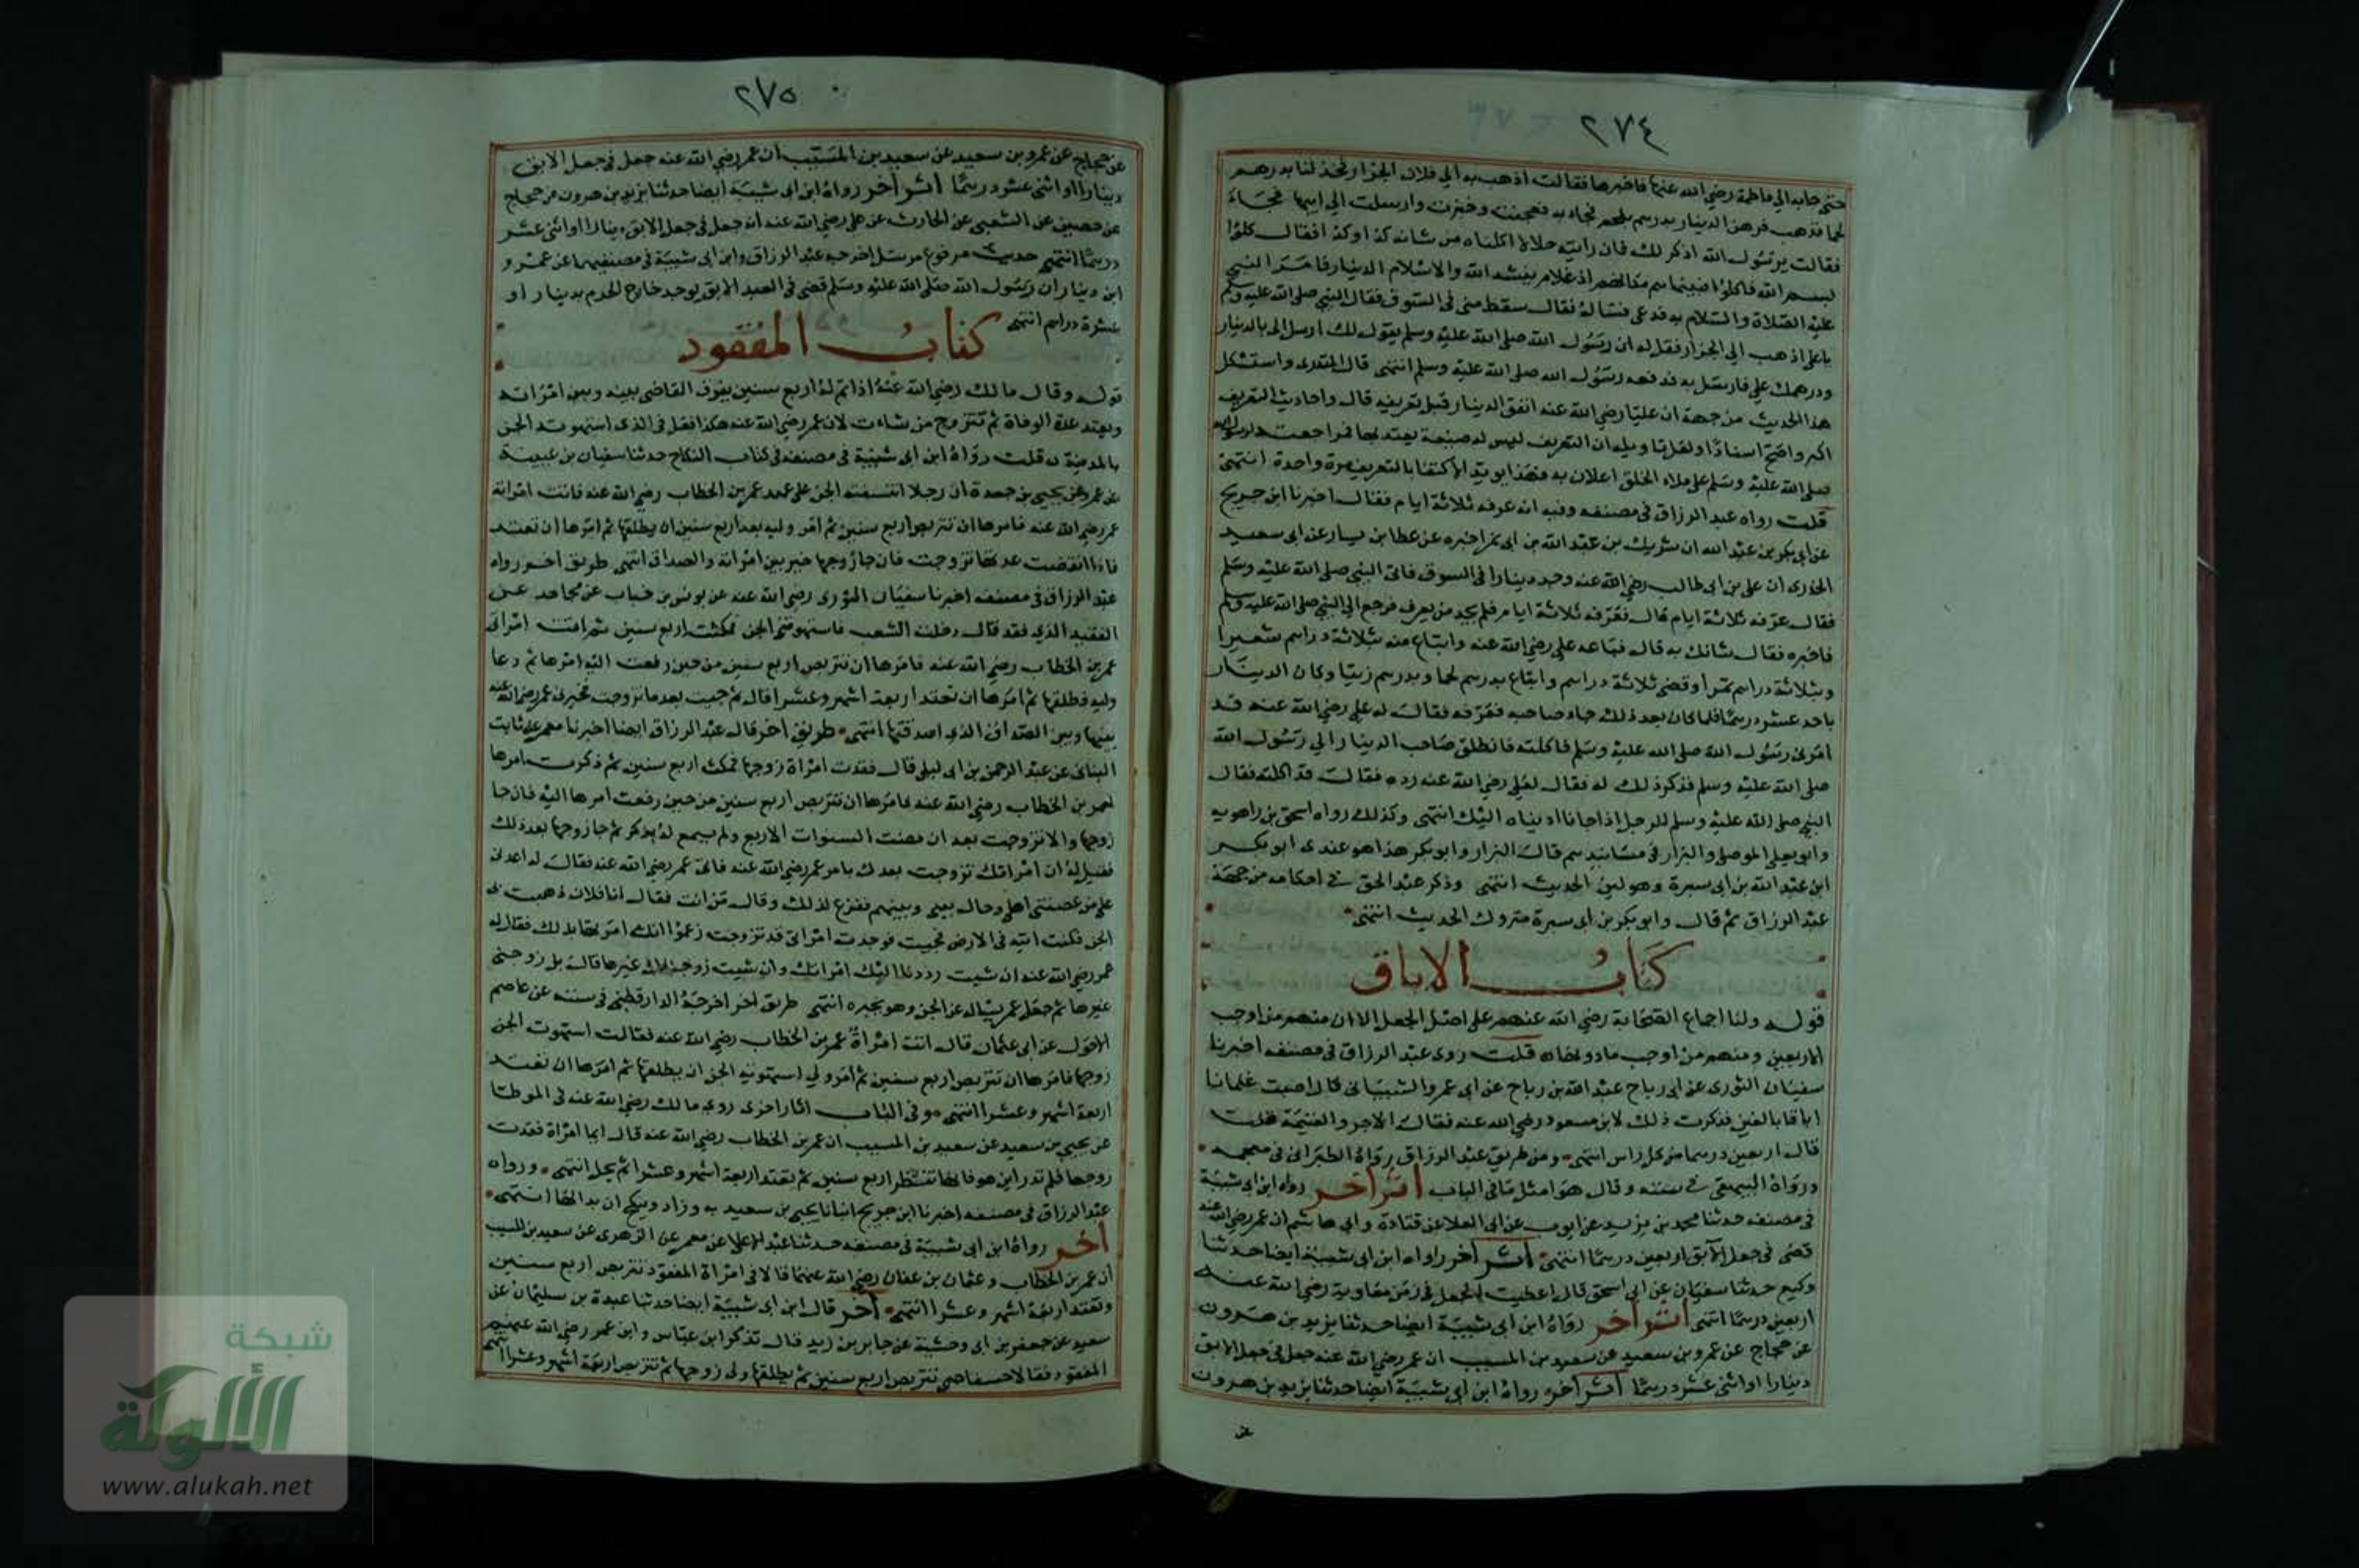 ٢٧٤
حتى جا به الي فاطمة رضي الله عنها فاخبرها فقالت اذهب به الي فلان الجزار فخذ لنا بدرهم
لحما فذهب فرهن الدينار بدرهم بلحم فجاء به فعجنت وخبزت وارسلت الي ابيها فجاء
فقالت يرسول الله اذكر لك فان رايته حلالا اكلناه من شانه كذا وكذا فقال كلوا
بسم الله فاكلوا فبينما هم مكانهم اذ غلام ينشد الله والاسلام الدينار فامر النبي
عليه الصلاة والسلام به فدعي فساله فقال سقط مني في السوق فقال النبي صلى الله عليه وسلم
يا علي اذهب الي الجزار فقل له ان رسول الله صلى الله عليه وسلم يقول لك ارسل الي بالدينار
ودرهمك علي فارسل به فدفعه رسول الله صلى الله عليه وسلم انتهى قال المنذري واستشكل
هذا الحديث من جهة ان عليا رضي الله عنه انفق الدينار قبل تعريفه قال واحاديث التعريف
اكبر واصح اسنادا ولعل تاويله ان التعريف ليس له صيغة يعتد بها فمراجعته لرسول الله
صلى الله عليه وسلم على ملاء الخلق اعلان به فهذا يويد الاكتفا بالتعريف مرة واحدة انتهى
قلت رواه عبد الرزاق في مصنفه وفيه انه عرفه ثلاثة ايام فقال اخبرنا ابن جريج
عن ابي بكر بن عبد الله ان شريك بن عبد الله بن ابي نمر اخبره عن عطا بن يسار عن ابي سعيد
الخدري ان علي بن ابي طالب رضي الله عنه وجد دينارا في السوق فاتى النبي صلى الله عليه وسلم
فقال عرفه ثلاثة ايام قال فعرفه ثلاثة ايام فلم يجد من يعرف فرجع الى النبي صلى الله عليه وسلم
فاخبره فقال شانك به قال فباعه علي رضي الله عنه وابتاع منه بثلاثة دراهم شعيرا
وبثلاثة دراهم تمرا وقضى ثلاثة دراهم وابتاع بدرهم لحما وبدرهم زيتا وكان الدينار
باحد عشر درهما فلما كان بعد ذلك جاء صاحبه فعرفه فقال له علي رضي الله عنه قد
امرني رسول الله صلى الله عليه وسلم فاكلته فانطلق صاحب الدينار الي رسول الله
صلى الله عليه وسلم فذكر ذلك له فقال لعلي رضي الله عنه رده فقال قد اكلته فقال
النبي صلى الله عليه وسلم للرجل اذا جانا اديناه اليك انتهى وكذلك رواه اسحق بن راهويه
وابو يعلى الموصلي والبزار في مسانيدهم قال البزار وابو بكر هذا هو عندي ابو بكر
ابن عبد الله بن ابي سبرة وهو لين الحديث انتهى وذكر عبد الحق في احكامه من جهة
عبد الرزاق ثم قال وابو بكر بن ابي سبرة متروك الحديث انتهى
كتاب الاباق
قوله ولنا اجماع الصحابة رضي الله عنهم على اصل الجعل الا ان منهم من اوجب
الاربعين ومنهم من اوجب ما دونها قلت روى عبد الرزاق في مصنفه اخبرنا
سفيان الثوري عن ابي رباح عبد الله بن رباح عن ابي عمرو الشيباني قال اصبت غلمانا
اباقا بالعين فذكرت ذلك لابن مسعود رضي الله عنه فقال الاجر والغنيمة قلت
قال اربعين درهما من كل راس انتهى ومن طريق عبد الرزاق رواه الطبراني في معجمه
ورواه البيهقي في سننه وقال هو امثل ما في الباب اثر اخر رواه ابن ابي شيبة
في مصنفه حدثنا محمد بن يزيد عن ايوب عن ابي العلا عن قتادة وابي هاشم ان عمر رضي الله عنه
قضى في جعل الآبق اربعين درهما انتهى اثر اخر رواه ابن ابي شيبة ايضا حدثنا
وكيع حدثنا سفيان عن ابي اسحق قال اعطيت الجعل في زمن معاوية رضي الله عنه
اربعين درهما انتهى اثر اخر رواه ابن ابي شيبة ايضا حدثنا يزيد بن هرون
عن حجاج عن عمرو بن سعيد عن سعيد بن المسيب ان عمر رضي الله عنه جعل في جعل الابق
دينارا او اثنى عشر درهما اثر اخر رواه ابن ابي شيبة ايضا حدثنا يزيد بن هرون
عن
٢٧٥
عن حجاج عن عمرو بن سعيد عن سعيد بن المسيب ان عمر رضي الله عنه جعل في جعل الابق
دينارا او اثنى عشر درهما اثر اخر رواه ابن ابي شيبة ايضا حدثنا يزيد بن هرون عن حجاج
عن حصين عن الشعبي عن الحارث عن علي رضي الله عنه انه جعل في جعل الابق دينارا او اثنى عشر
درهما انتهى حديث مرفوع مرسل اخرجه عبد الرزاق وابن ابي شيبة في مصنفيهما عن عمرو
ابن دينار ان رسول الله صلى الله عليه وسلم قضى في العبد الابق يوجد خارج الحرم بدينار او
عشرة دراهم انتهى
كتاب المفقود
قوله وقال مالك رضي الله عنه اذا تم له اربع سنين يفرق القاضي بينه وبين امراته
وتعتد عدة الوفاة ثم تتزوج من شاءت لان عمر رضي الله عنه هكذا فعل في الذي استهوته الجن
بالمدينة قلت رواه ابن ابي شيبة في مصنفه في كتاب النكاح حدثنا سفيان بن عيينة
عن عمرو عن يحيى بن جعدة ان رجلا انتسفته الجن على عهد عمر بن الخطاب رضي الله عنه فاتت امراته
عمر رضي الله عنه فامرها ان تتربص اربع سنين ثم امر وليه بعد اربع سنين ان يطلقها ثم امرها ان تعتد
فاذا انقضت عدتها تزوجت فان جا زوجها خير بين امراته والصداق انتهى طريق اخر رواه
عبد الرزاق في مصنفه اخبرنا سفيان الثوري رضي الله عنه عن يونس بن خباب عن مجاهد عن
الفقيد الذي فقد قال دخلت الشعب فاستهوتني الجن فمكثت اربع سنين ثم اتت امراتي
عمر بن الخطاب رضي الله عنه فامرها ان تتربص اربع سنين من حين رفعت اليه امرها ثم دعا
وليه فطلقها ثم امرها ان تعتد اربعة اشهر وعشرا قال ثم جيت بعد ما تزوجت فخيرني عمر رضي الله عنه
بينها وبين الصداق الذي اصدقتها انتهى طريق اخر قال عبد الرزاق ايضا اخبرنا معمر عن ثابت
البناني عن عبد الرحمن بن ابي ليلى قال فقدت امراة زوجها فمكث اربع سنين ثم ذكرت امرها
لعمر بن الخطاب رضي الله عنه فامرها ان تتربص اربع سنين من حين رفعت امرها اليه فان جا
زوجها والا تزوجت بعد ان مضت السنوات الاربع ولم يسمع له بذكر ثم جا زوجها بعد ذلك
فقيل له ان امراتك تزوجت بعدك بامر عمر رضي الله عنه فاتى عمر رضي الله عنه فقال له اعدني
على من غصبني اهلي وحال بيني وبينهم ففزع لذلك وقال من انت فقال انا فلان ذهبت بي
الجن فكنت اتيه في الارض فجيت فوجدت امراتي قد تزوجت زعموا انك امرتها بذلك فقال له
عمر رضي الله عنه ان شيت رددنا اليك امراتك وان شيت زوجناك غيرها قال بل زوجني
غيرها ثم جعل عمر يساله عن الجن وهو يخبره انتهى طريق اخر اخرجه الدارقطني في سننه عن عاصم
الاحول عن ابي عثمان قال اتت امراة عمر بن الخطاب رضي الله عنه فقالت استهوت الجن
زوجها فامرها ان تتربص اربع سنين ثم امر ولي استهوته الجن ان يطلقها ثم امرها ان تعتد
اربعة اشهر وعشرا انتهى وفي الباب اثار اخرى روى مالك رضي الله عنه في الموطا
عن يحيى بن سعيد عن سعيد بن المسيب ان عمر بن الخطاب رضي الله عنه قال ايما امراة فقدت
زوجها فلم تدر اين هو فانها تنتظر اربع سنين ثم تعتد اربعة اشهر وعشرا ثم تحل انتهى ورواه
عبد الرزاق في مصنفه اخبرنا ابن جريج انبانا يحيى بن سعيد به وزاد وينكح ان بدا لها انتهى
اخر رواه ابن ابي شيبة في مصنفه حدثنا عبد الاعلى عن معمر عن الزهري عن سعيد بن المسيب
ان عمر بن الخطاب وعثمان بن عفان رضي الله عنهما قالا في امراة المفقود تتربص اربع سنين
وتعتد اربعة اشهر وعشرا انتهى اخر قال ابن ابي شيبة ايضا حدثنا عبدة بن سليمان عن
سعيد عن جعفر بن ابي وحشية عن جابر بن زيد قال تذكر ابن عباس وابن عمر رضي الله عنهم
المفقود فقالا تتربص اربع سنين ثم يطلقها ولي زوجها ثم تتربص اربعة اشهر وعشرا انتهى
شبكة
الألوكة
www.alukah.net